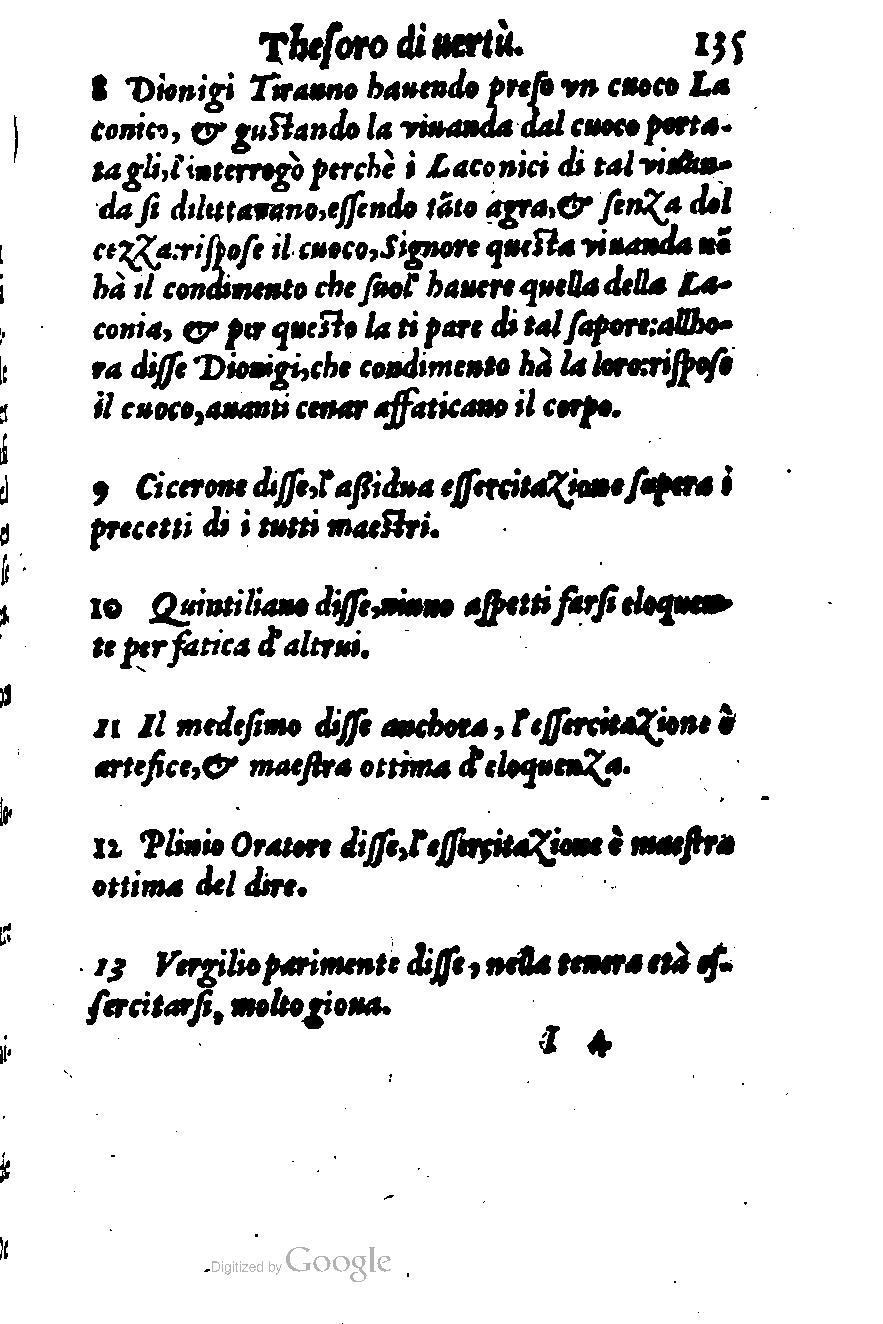 Theſoro di uertù. 135
8 Dionigi Tiranno hauendo preſo vn cuoco La
conico, & guſtando la viuanda dal cuoco porta-
tagli,l'interrogò perchè i Laconici di tal viuan-
da ſi dilettauano,eſſendo tãto agra,& ſenza dol
cezza:riſpoſe il cuoco,Signore queſta viuanda nõ
hà il condimento che ſuol' hauere quella della La-
conia, & per queſto la ti pare di tal ſapore:allho-
ra diſſe Dionigi,che condimento hà la loro:riſpoſe
il cuoco,auanti cenar affaticano il corpo.
9 Cicerone diſſe,l'aßidua eſſercitazione ſupera i
precetti di i tutti maeſtri.
10 Quintiliano diſſe,niuno aſpetti farſi eloquen-
te per fatica d'altrui.
11 Il medeſimo diſſe anchora, l'eſſercitazione è
artefice,& maeſtra ottima d'eloquenza.
12 Plinio Oratore diſſe,l'eſſercitazione è maeſtra
ottima del dire.
13 Vergilio parimente diſſe, nella tenera età eſ-
ſercitarſi, molto gioua.
I 4
Digitized by Google